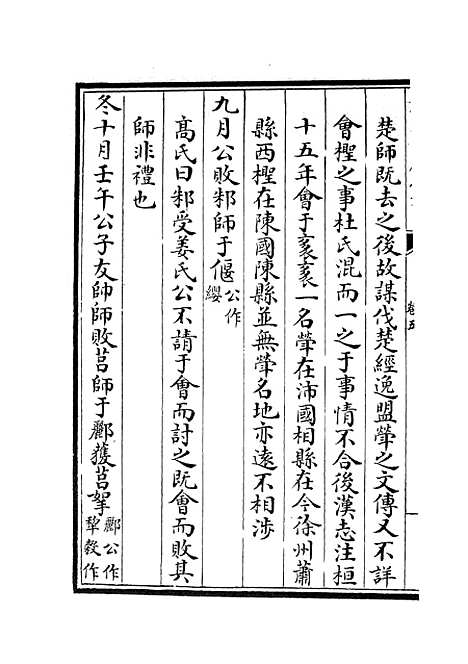 楚師既去之後故謀伐楚經逸盟犖之文傳又不詳
會檉之事杜氏混而一之于事情不合後漢志注桓
十五年會于袲袲一名犖在沛國相縣在今徐州蕭
縣西檉在陳國陳縣並無犖名地亦遠不相涉
九月公敗邾師于偃公作纓
高氏曰邾受姜氏公不請于會而討之既會而敗其
師非禮也
冬十月壬午公子友帥師敗莒師于酈獲莒挐酈公作犂穀作
卷五